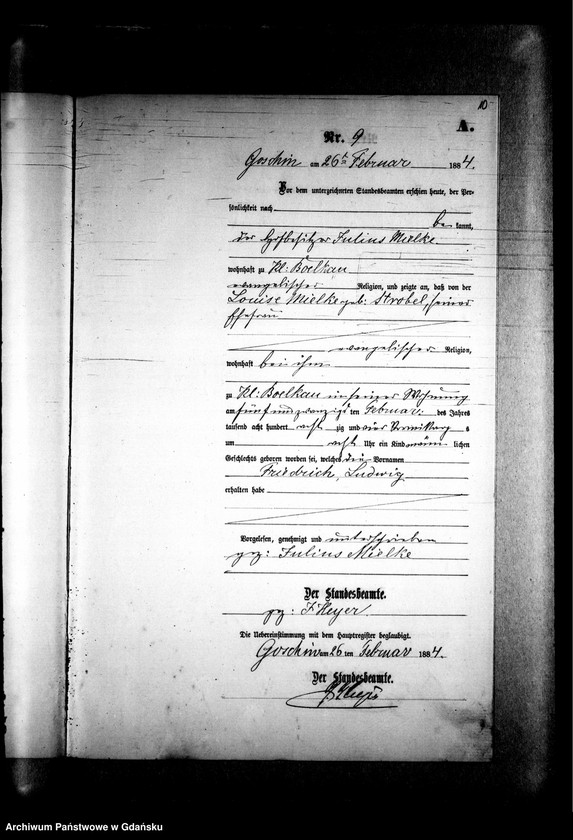 10
A.
Nr. 9
Goschin am 26ten Februar 1884.
Vor dem unterzeichneten Standesbeamten erschien heute, der Per-
sönlichkeit nach
be kannt,
der Hofbesitzer Julius Mielke
wohnhaft zu Kl: Boelkau
evangelischer Religion, und zeigte an, daß von der
Louise Mielke geb: Strobel, seiner
Ehefrau
evangelischer Religion,
wohnhaft bei ihm
zu Kl: Boelkau in seiner Wohnung
am fünf und zwanzigsten Februar des Jahres
tausend acht hundert acht zig und vier Vormittag s
um acht Uhr ein Kind männ lichen
Geschlechts geboren worden sei, welches die Vornamen
Friedrich, Ludwig
erhalten habe
Vorgelesen, genehmigt und unterschrieben
gez: Julius Mielke
Der Standesbeamte.
gez: F Heyer
Die Uebereinstimmung mit dem Hauptregister beglaubigt.
Goschin am 26 ten Februar 1884.
Der Standesbeamte.
Archiwum Państwowe w Gdańsku